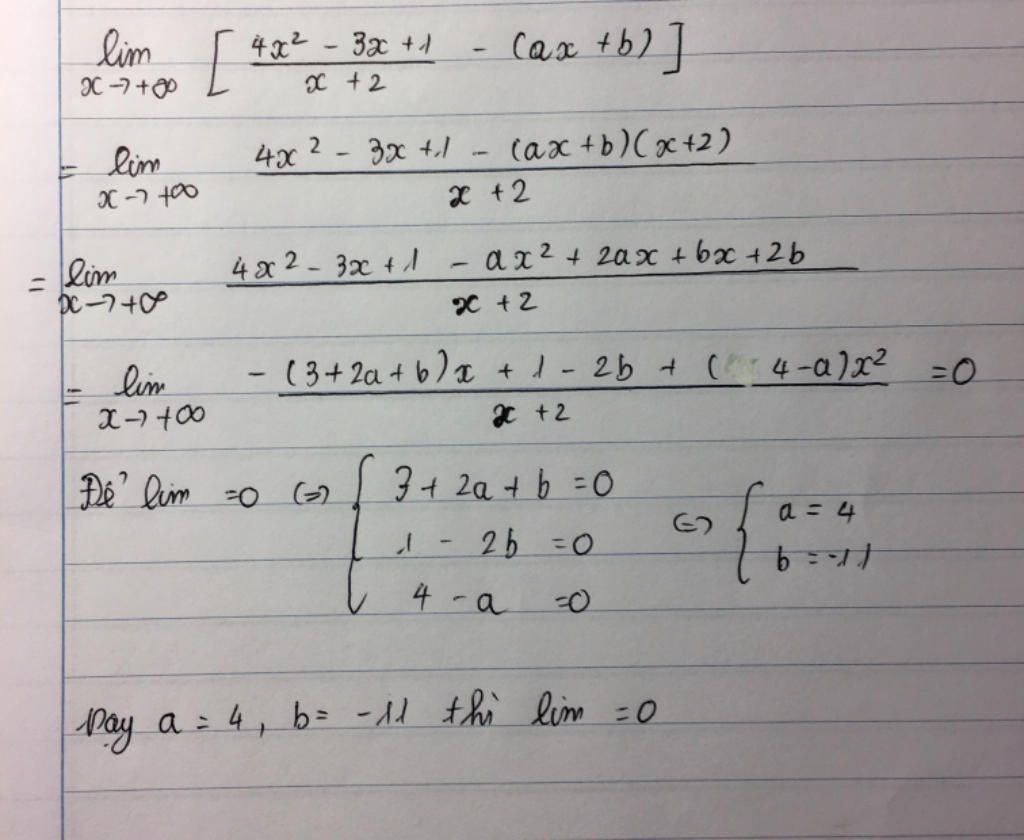 lim x→+∞ [ (4x² - 3x + 1)/(x + 2) - (ax + b) ]
= lim x→+∞ (4x² - 3x + 1 - (ax + b)(x + 2))/(x + 2)
= lim x→+∞ (4x² - 3x + 1 - ax² + 2ax + bx + 2b)/(x + 2)
= lim x→+∞ (-(3 + 2a + b)x + 1 - 2b + (4 - a)x²)/(x + 2) = 0
Để lim = 0 (=) { 3 + 2a + b = 0
1 - 2b = 0
4 - a = 0
(=) { a = 4
b = -11
Vạy a = 4, b = -11 thì lim = 0